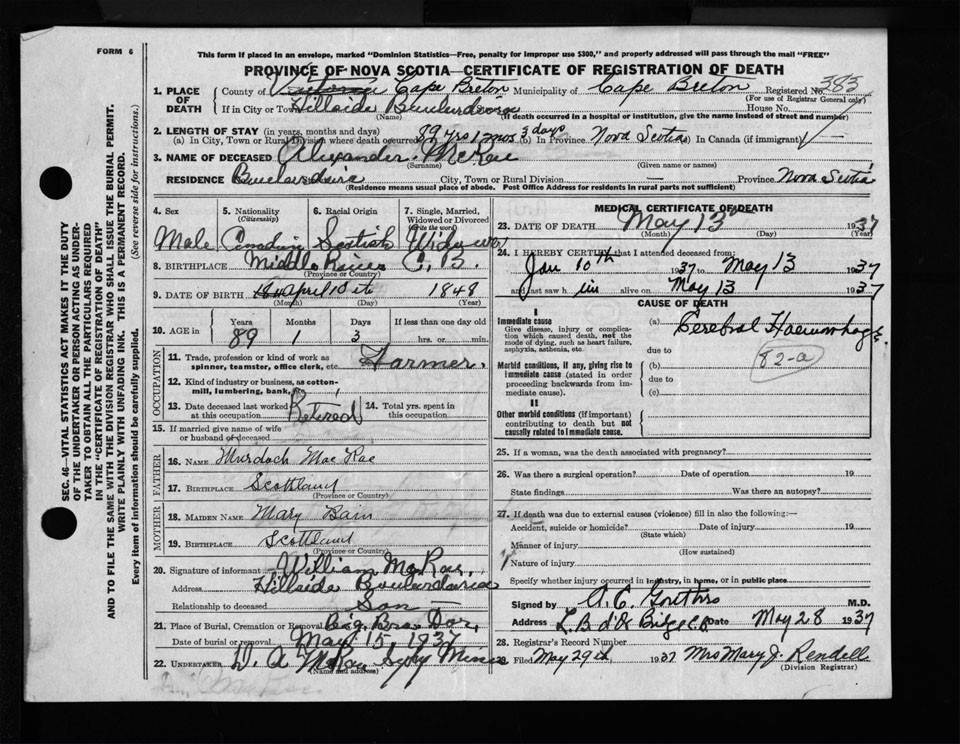 FORM 6
This form if placed in an envelope, marked "Dominion Statistics—Free, penalty for improper use $300," and properly addressed will pass through the mail "FREE"
PROVINCE OF NOVA SCOTIA—CERTIFICATE OF REGISTRATION OF DEATH
1. PLACE OF DEATH County of Victoria Cape Breton Municipality of Cape Breton Registered No. 383
(For use of Registrar General only)
If in City or Town Hillside Boularderie House No.
(Name) (If death occurred in a hospital or institution, give the name instead of street and number)
2. LENGTH OF STAY (in years, months and days)
(a) In City, Town or Rural Division where death occurred 89 yrs 1 mos 3 days (b) In Province Nova Scotia In Canada (if immigrant) —
3. NAME OF DECEASED Alexander McRae
(Surname) (Given name or names)
RESIDENCE Boulardrie City, Town or Rural Division — Province Nova Scotia
(Residence means usual place of abode. Post Office Address for residents in rural parts not sufficient)
4. Sex 5. Nationality (Citizenship) 6. Racial Origin 7. Single, Married, Widowed or Divorced (Write the word)
Male Canadian Scottish Widower
8. BIRTHPLACE Middle River C.B.
(Province or Country)
9. DATE OF BIRTH April 10th 1848
(Month) (Day) (Year)
10. AGE in Years Months Days If less than one day old
89 1 3 hrs. or min.
OCCUPATION
11. Trade, profession or kind of work as spinner, teamster, office clerk, etc. Farmer.
12. Kind of industry or business, as cotton-mill, lumbering, bank, etc.
13. Date deceased last worked at this occupation Retired 14. Total yrs. spent in this occupation
15. If married give name of wife or husband of deceased
FATHER
16. NAME Murdoch Mac Rae
17. BIRTHPLACE Scottland
(Province or Country)
MOTHER
18. MAIDEN NAME Mary Bain
19. BIRTHPLACE Scottland
(Province or Country)
20. Signature of informant William McRae
Address Hillside Boulardarie
Relationship to deceased Son
21. Place of Burial, Cremation or Removal Big Bras Dor,
Date of burial or removal May 15, 1937
22. UNDERTAKER D. A McKay Sydney Mines
(Name and address)
MEDICAL CERTIFICATE OF DEATH
23. DATE OF DEATH May 13 1937
(Month) (Day) (Year)
24. I HEREBY CERTIFY that I attended deceased from:
Jan 10th 1937 to May 13 1937
and last saw him alive on May 13 1937
CAUSE OF DEATH
I
Immediate cause (a) Cerebral Haemorrhage.
Give disease, injury or complication which caused death, not the mode of dying, such as heart failure, asphyxia, asthenia, etc.
due to
82-a
Morbid conditions, if any, giving rise to immediate cause (stated in order proceeding backwards from immediate cause).
(b)
due to
(c)
II
Other morbid conditions (if important) contributing to death but not causally related to immediate cause.
25. If a woman, was the death associated with pregnancy?
26. Was there a surgical operation? Date of operation 19
State findings Was there an autopsy?
27. If death was due to external causes (violence) fill in also the following:—
Accident, suicide or homicide? Date of injury 19
(State which)
Manner of injury
(How sustained)
Nature of injury
Specify whether injury occurred in industry, in home, or in public place
Signed by M.D.
Address Date May 28 1937
28. Registrar's Record Number
Filed May 29th 1937 Mrs Mary J. Rendell
(Division Registrar)
SEC. 46—VITAL STATISTICS ACT MAKES IT THE DUTY
OF THE UNDERTAKER OR PERSON ACTING AS UNDER-
TAKER TO OBTAIN ALL THE PARTICULARS REQUIRED
IN THE "CERTIFICATE OF REGISTRATION OF DEATH"
AND TO FILE THE SAME WITH THE DIVISION REGISTRAR WHO SHALL ISSUE THE BURIAL PERMIT.
WRITE PLAINLY WITH UNFADING INK. THIS IS A PERMANENT RECORD.
Every item of information should be carefully supplied. (See reverse side for instructions.)